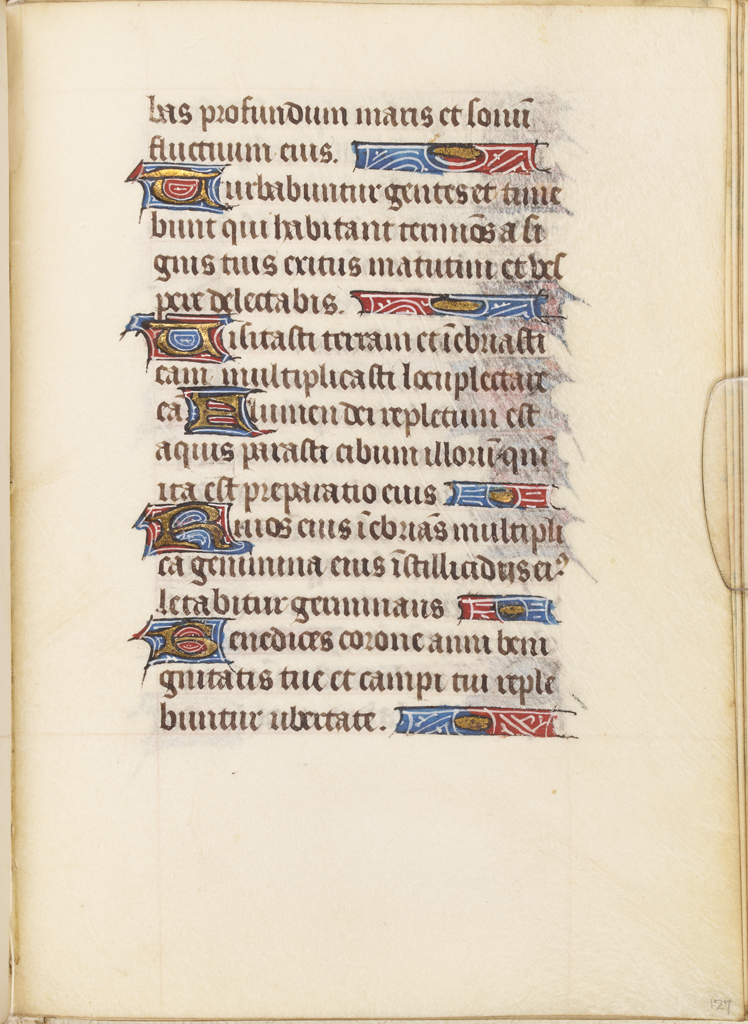 bas profundum maris et sonū
fluctuum eius.
Turbabuntur gentes et time
bunt qui habitant terminos a si
gnis tuis exitus matutini et ves
pere delectabis.
Uisitasti terram et īebriasti
eam multiplicasti locupletare
eā Flumen dei repletum est
aquis parasti cibum illorū qm̄
ita est preparatio eius
Riuos eius īebrias multipli
ca genimina eius ī stillicidiis ei⁹
letabitur germinans
Benedices corone anni beni
gnitatis tue et campi tui reple
buntur ubertate.
127